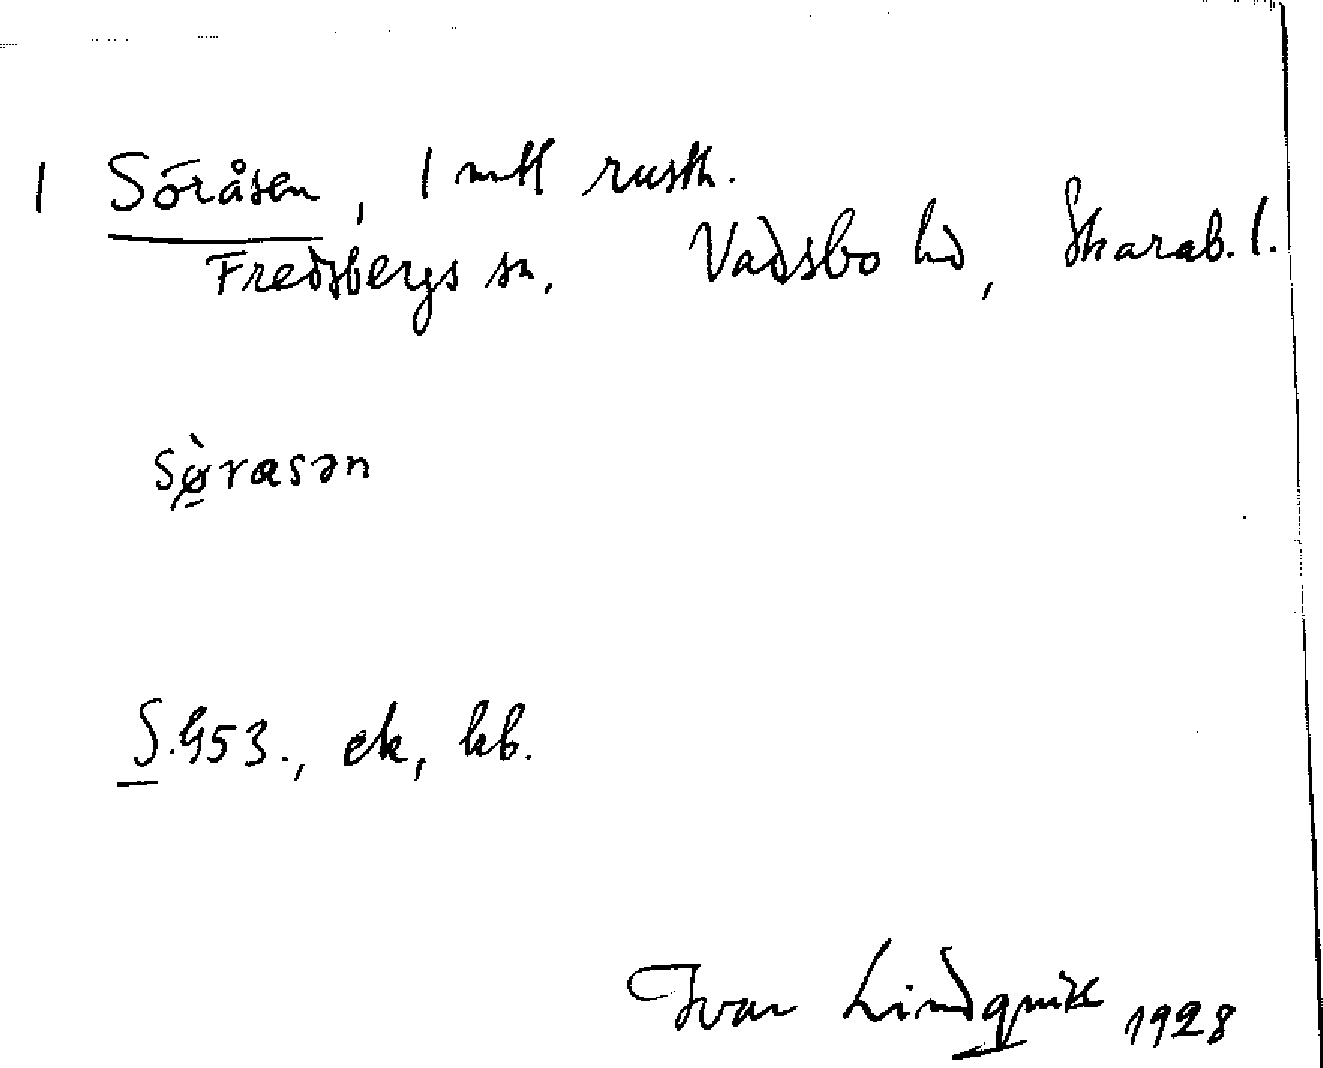 1 Sōråsen, 1 mtl rusth.
Fredsbergs sn. Vadsbo hd, Skarab. l.
sø̠̀rasən
S. 453., ek, kb.
Ivar Lindquist 1928